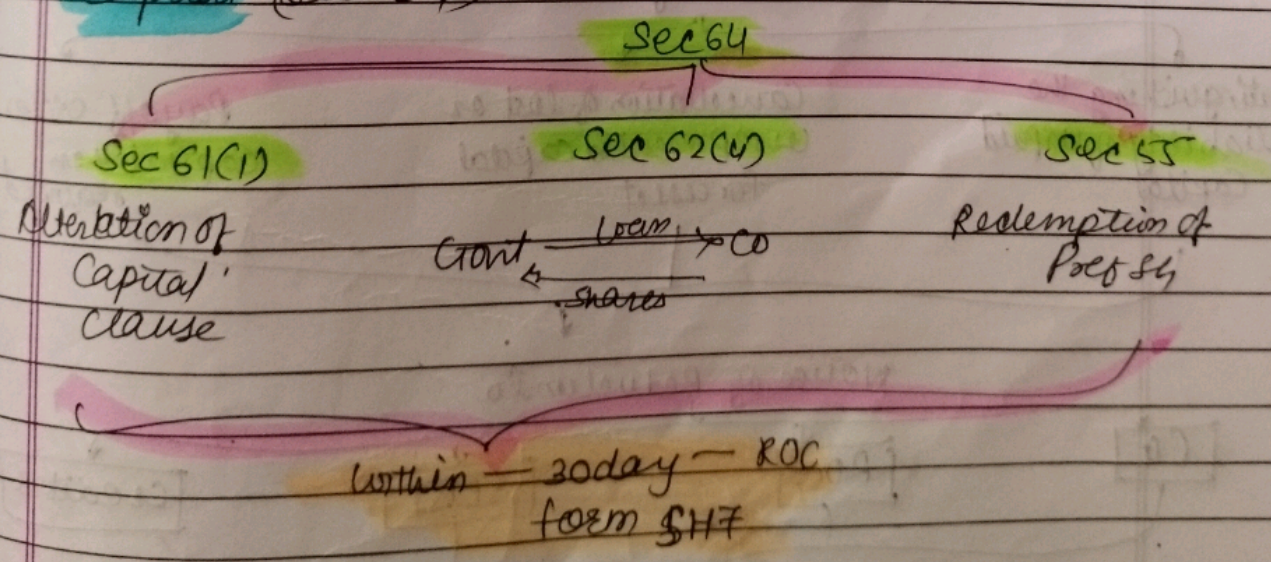 Sec 64
Sec 61(1)
Sec 62(4)
Sec 55
Alteration of
Capital
Clause
Govt
loan
CO
shares
Redemption of
Pref Sh
Within — 30day — ROC
form SH7